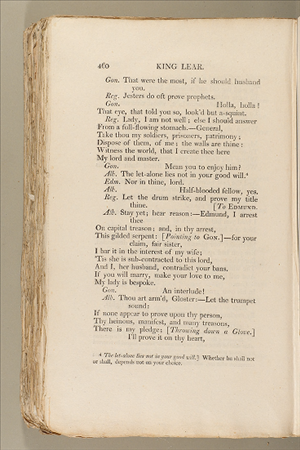 460 KING LEAR.
Gon. That were the most, if he should husband
you.
Reg. Jesters do oft prove prophets.
Gon. Holla, holla!
That eye, that told you so, look'd but a-squint.
Reg. Lady, I am not well; else I should answer
From a full-flowing stomach.—General,
Take thou my soldiers, prisoners, patrimony;
Dispose of them, of me; the walls are thine:
Witness the world, that I create thee here
My lord and master.
Gon. Mean you to enjoy him?
Alb. The let-alone lies not in your good will.⁴
Edm. Nor in thine, lord.
Alb. Half-blooded fellow, yes.
Reg. Let the drum strike, and prove my title
thine. [To EDMUND.
Alb. Stay yet; hear reason:—Edmund, I arrest
thee
On capital treason; and, in thy arrest,
This gilded serpent: [Pointing to GON.]—for your
claim, fair sister,
I bar it in the interest of my wife;
'Tis she is sub-contracted to this lord,
And I, her husband, contradict your bans.
If you will marry, make your love to me,
My lady is bespoke.
Gon. An interlude!
Alb. Thou art arm'd, Gloster:—Let the trumpet
sound:
If none appear to prove upon thy person,
Thy heinous, manifest, and many treasons,
There is my pledge; [Throwing down a Glove.]
I'll prove it on thy heart,
⁴ The let-alone lies not in your good will.] Whether he shall not
or shall, depends not on your choice.